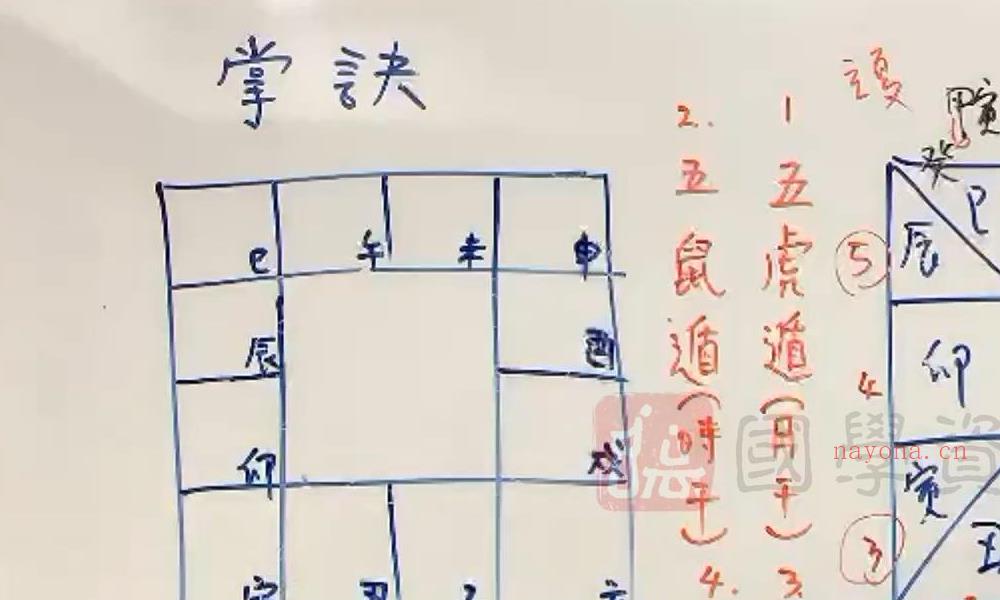 掌訣
巳 午 未 申
辰 酉
卯 戌
寅 丑 子
1 五虎遁(月干)
3.
2. 五鼠遁(時干)
4.
甲寅
癸
巳
辰
5
卯
4
寅
3
國學資
nayona.cn